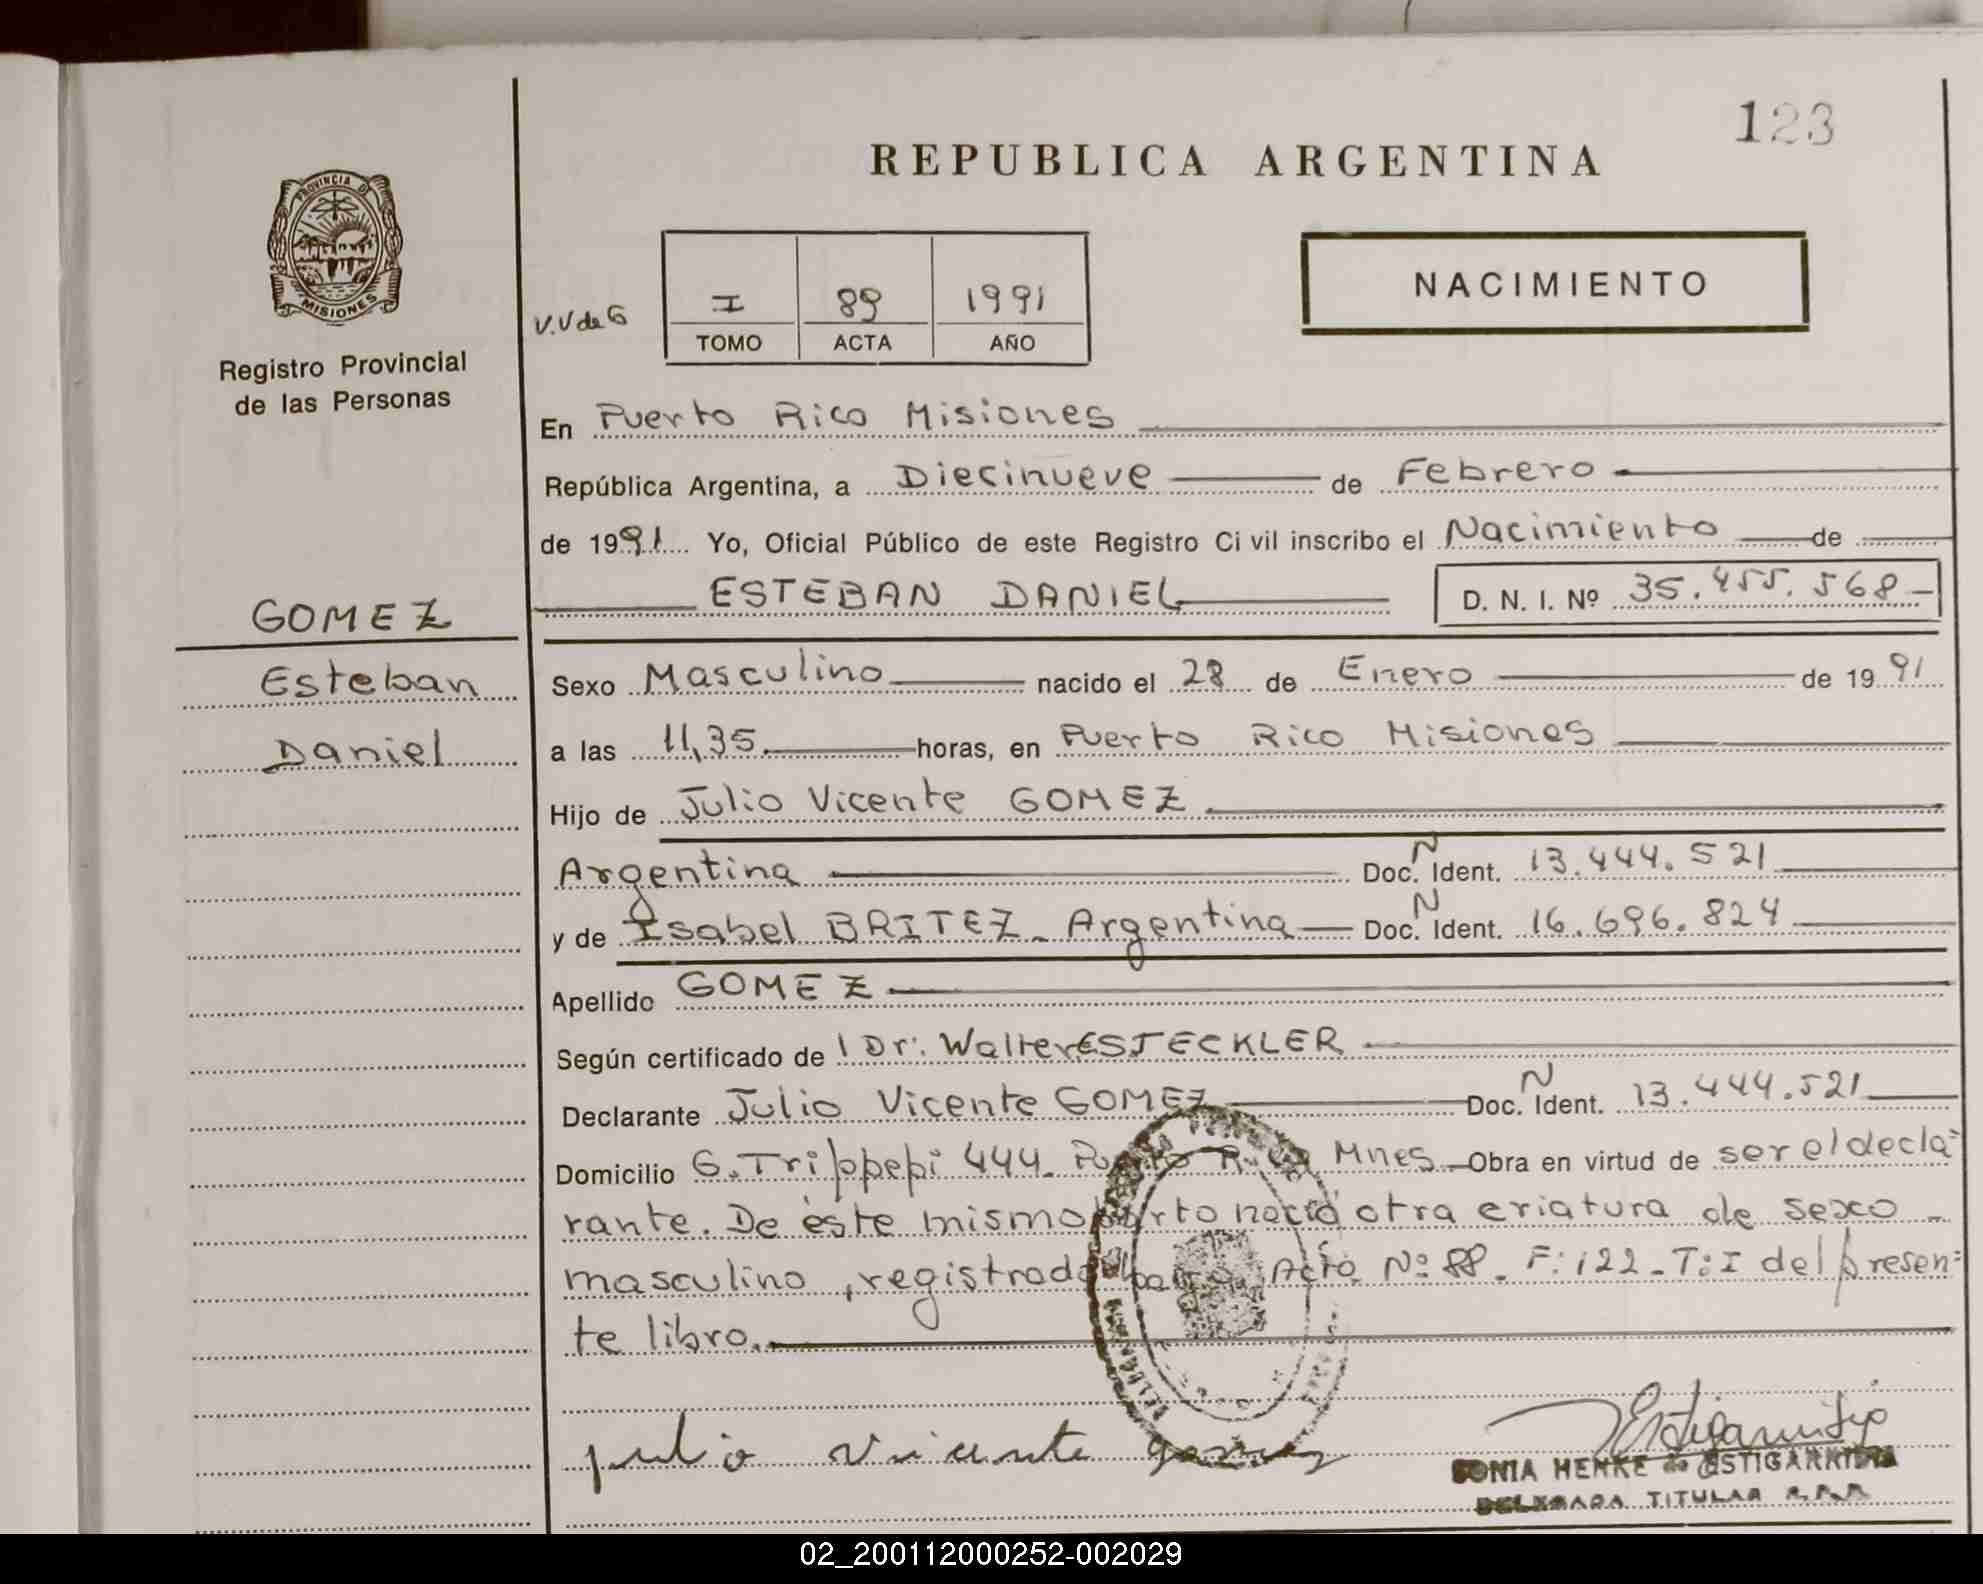 123
REPUBLICA ARGENTINA
PROVINCIA DE
MISIONES
Registro Provincial
de las Personas
V.V de G
I 89 1991
TOMO ACTA AÑO
NACIMIENTO
En Puerto Rico Misiones
República Argentina, a Diecinueve de Febrero
de 1991 Yo, Oficial Público de este Registro Ci vil inscribo el Nacimiento de
ESTEBAN DANIEL D. N. I. Nº 35.455.568
GOMEZ
Esteban
Daniel
Sexo Masculino nacido el 28 de Enero de 1991
a las 11,35 horas, en Puerto Rico Misiones
Hijo de Julio Vicente GOMEZ
Argentina Doc. N Ident. 13.444.521
y de Isabel BRITEZ - Argentina Doc. N Ident. 16.696.824
Apellido GOMEZ
Según certificado de l Dr: Walter ESTECKLER
Declarante Julio Vicente GOMEZ Doc. N Ident. 13.444.521
Domicilio G. Trippepi 444. Puerto Rico Mnes Obra en virtud de ser el decla=
rante. De éste mismo parto nació otra criatura de sexo
masculino, registrada bajo Acta Nº 88. F: 122 - T: I del presen=
te libro.
julio vicente gomez
SONIA HENKE de ESTIGARRIBIA
DELEGADA TITULAR R.P.P.
02_200112000252-002029